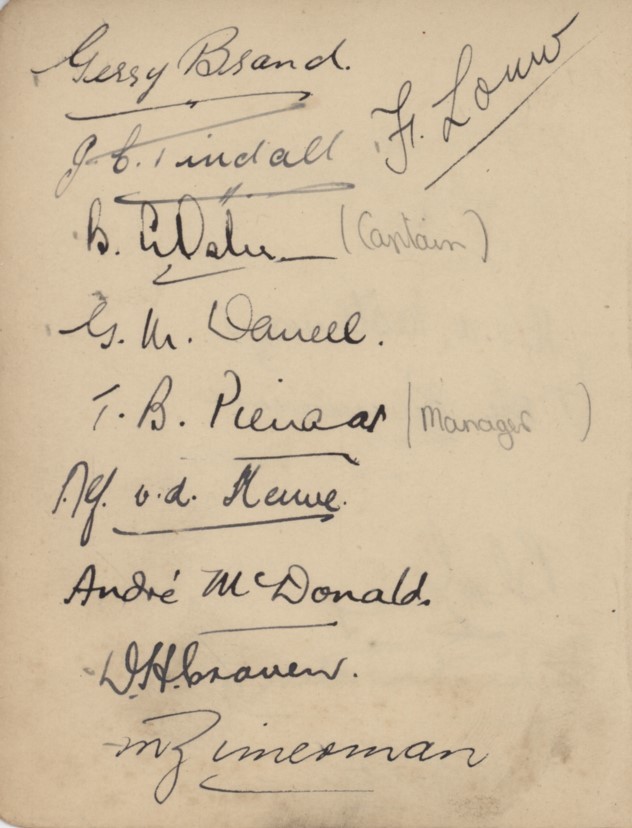 Gerry Brand.
F. Louw
J. C. Tindall
B. L Osler (Captain)
G. M. Daneel.
T. B. Pienaar (Manager)
Alf. v.d. Merwe.
André McDonald.
D.H. Craven.
M Zimerman